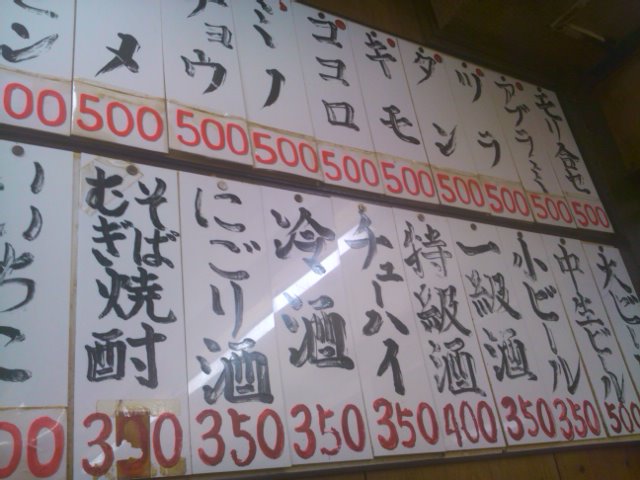 モリ合セ
500
アブラミ
500
ツラ
500
タン
500
キモ
500
ココロ
500
ミノ
500
チョウ
500
メ
500
ン
00
大ビール
中生ビール
500
小ビール
350
一級酒
350
特級酒
400
チューハイ
350
冷酒
350
にごり酒
350
そば
むぎ焼酎
350
いいちこ
00